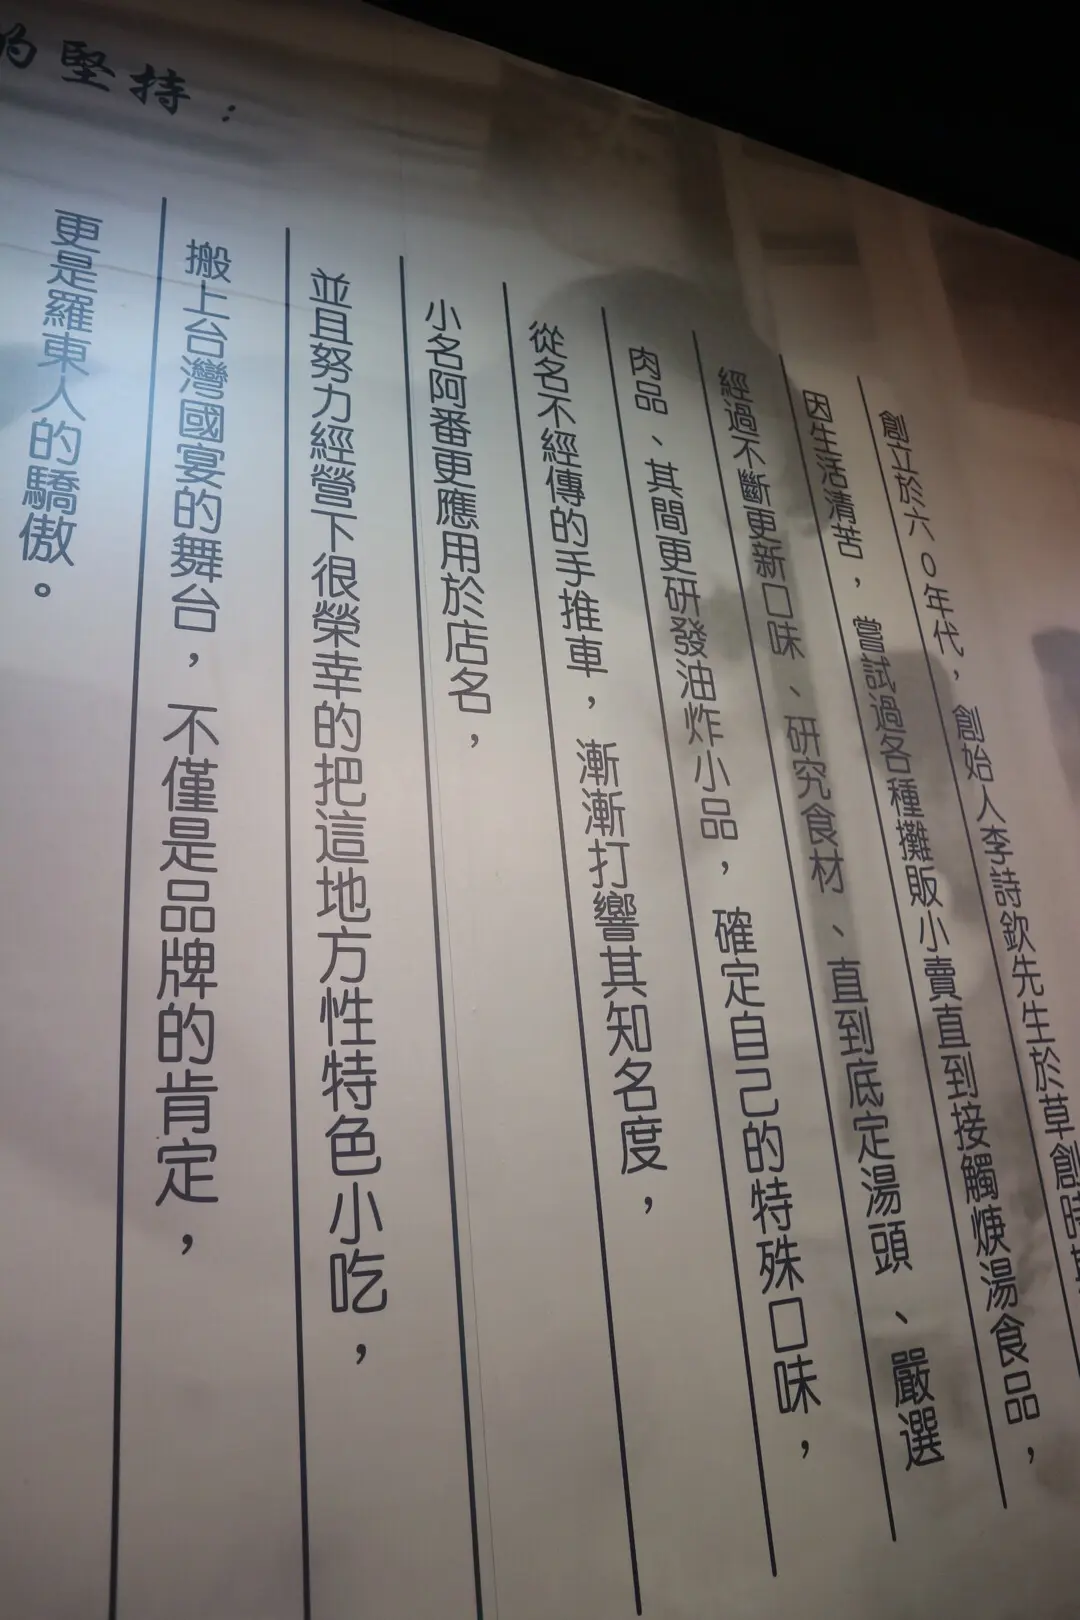 的堅持：
創立於六0年代，創始人李詩欽先生於草創時
因生活清苦，嘗試過各種攤販小賣直到接觸焿湯食品，
經過不斷更新口味、研究食材、直到底定湯頭、嚴選
肉品、其間更研發油炸小品，確定自己的特殊口味，
從名不經傳的手推車，漸漸打響其知名度，
小名阿番更應用於店名，
並且努力經營下很榮幸的把這地方性特色小吃，
搬上台灣國宴的舞台，不僅是品牌的肯定，
更是羅東人的驕傲。